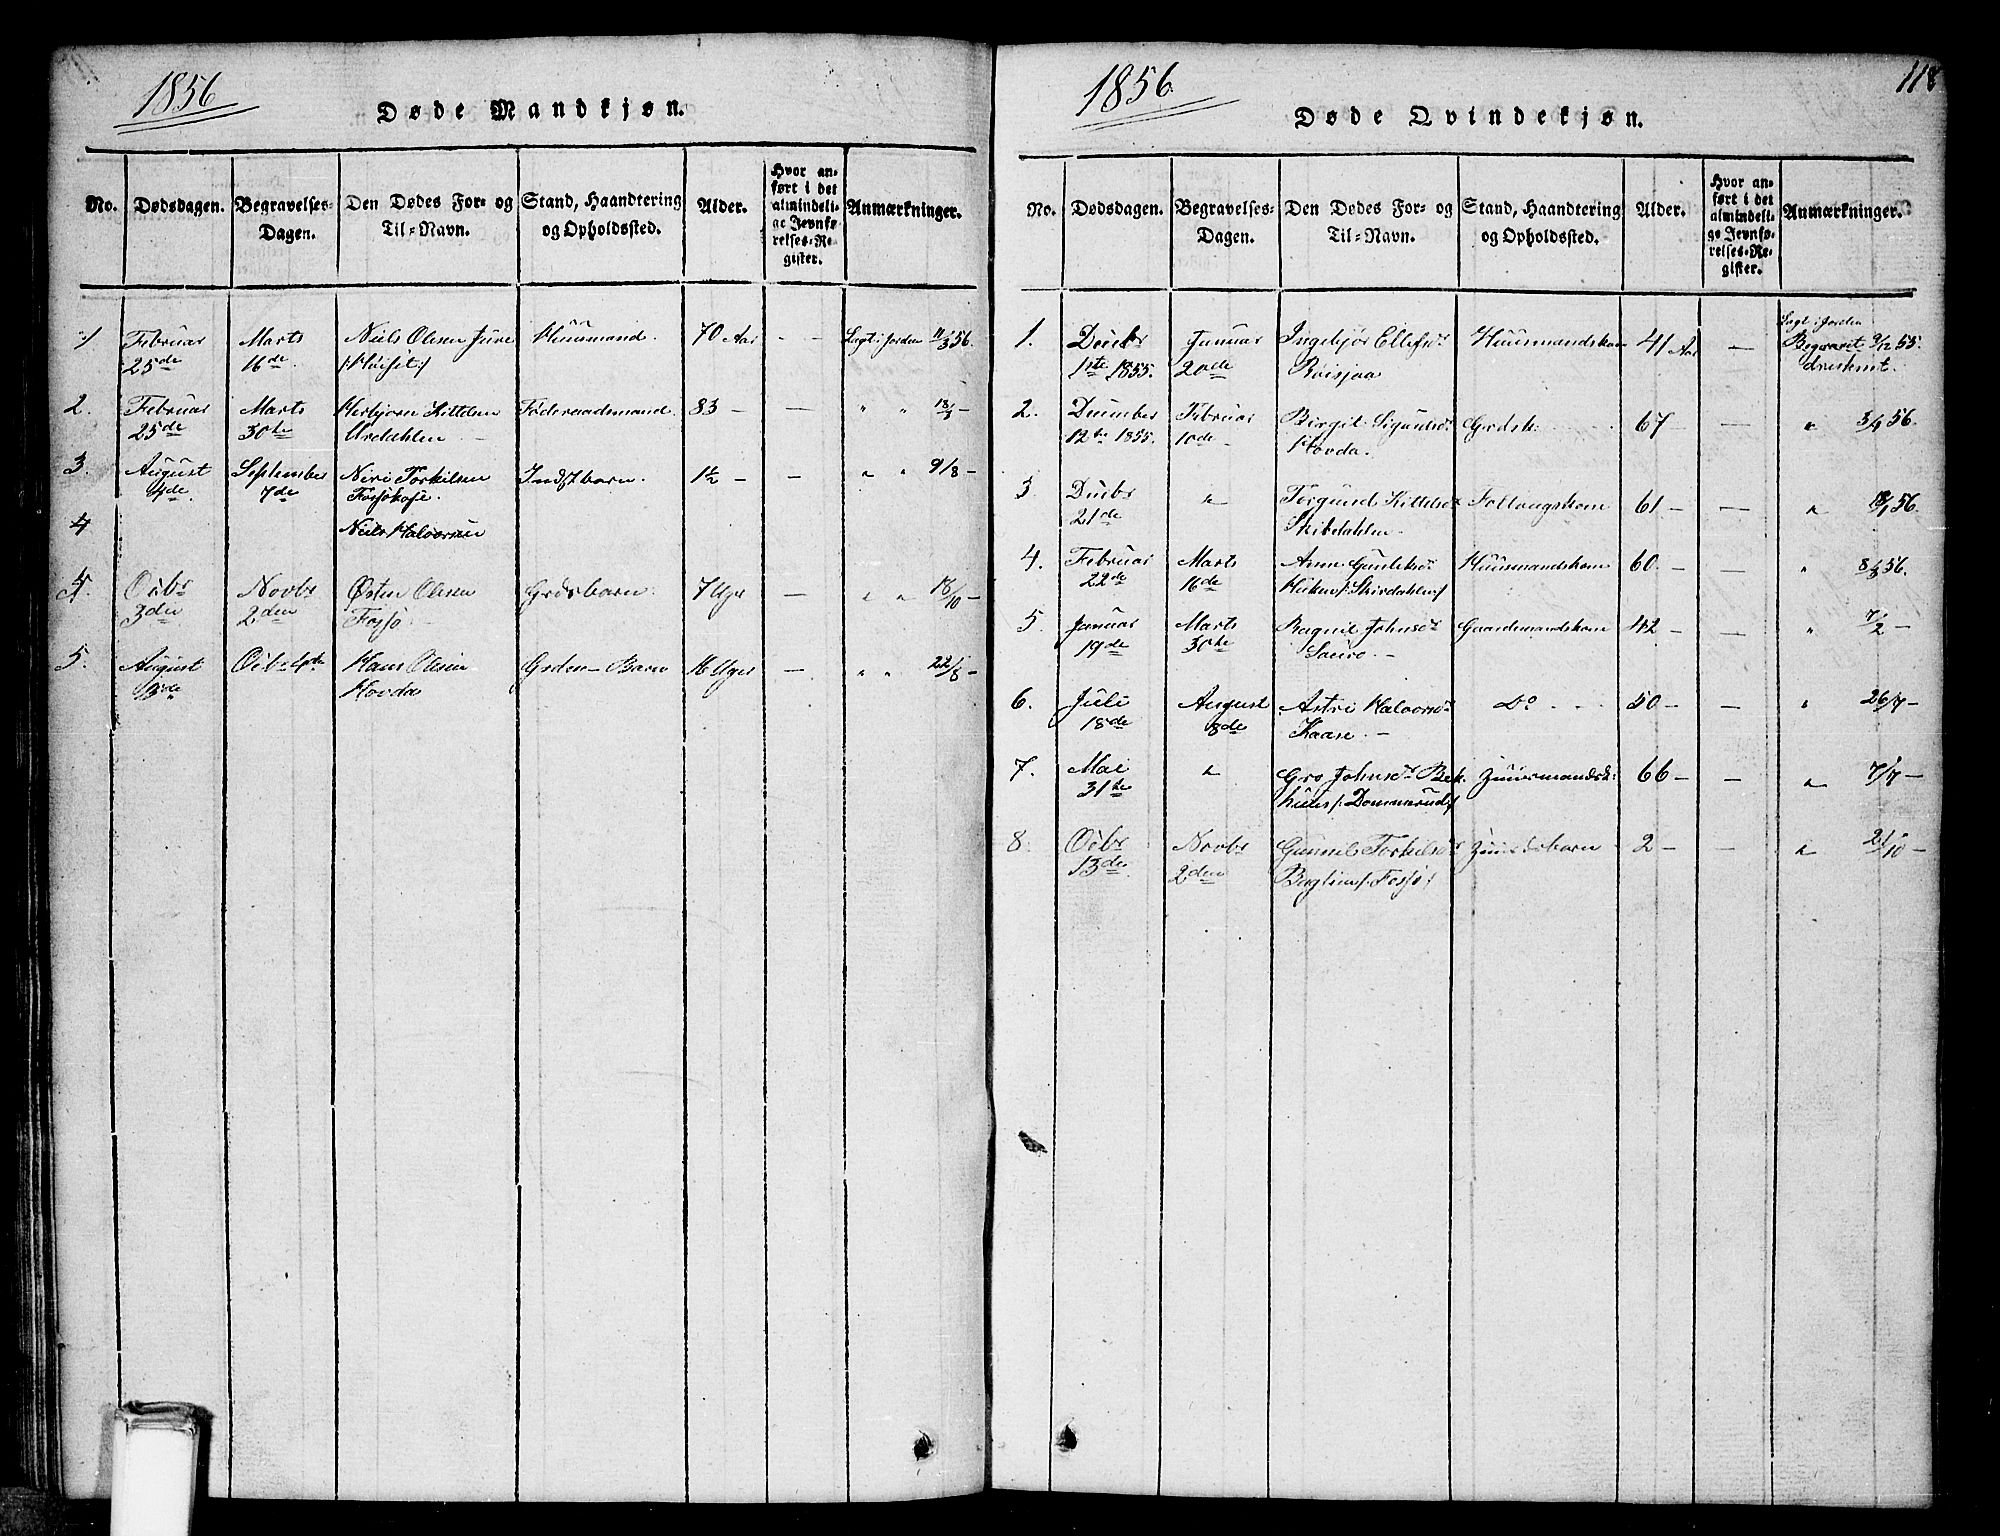 1856
Døde Mandkjøn.
No. Dødsdagen. Begravelses-Dagen. Den Dødes For- og Til-Navn. Stand, Haandtering og Opholdssted. Alder. Hvor anført i det almindelige Jevnførelses-Register. Anmærkninger.
1 Februar Marts Niels Olsen Huusmand. 70 Aar - - Lagt i Jorden 11/3 56.
25de 16de
2. Februar Marts Kittelsen Føderaadsmand. 83 - — " " 18/3 -
25de 30te
3. August September Torkilsen Indstbarn. 1½ - — " " 9/8 -
4de 7de
4 Niels Halvorsen
4. Octbr Novbr Østen Olsen Grdsbarn. 7 Uger — " " 18/10 -
3den 2den Fossø
5. August Octb 4de Hans Olsen Barn 16 Uger — " " 22/8 -
Hovda
1856. 118
Døde Qvindekjøn.
No. Dødsdagen. Begravelses-Dagen. Den Dødes For- og Til-Navn. Stand, Haandtering og Opholdssted. Alder. Hvor anført i det almindelige Jevnførelses-Register. Anmærkninger.
Lagt i Jorden
1. Decbr Januar Ingebjør Ellefsdr Huusmandskone 41 Aar — Begravet 9/12 55.
1ste 1855. 20de Roisjaa
2. December Februar Birgit Sigurdsdr Grdsk. 67 - — " 3/1 56.
12te 1855. 10de Hovda.
3 Decbr " Torgund Kittelsdr 61 - — " 56.
21de
4. Februar Marts Anne Gunleksdr Huusmandskone 60. - — " 8/3 56.
22de 16de
5. Januar Marts Ragnil Johnsdr Gaardmandskone 42 - — " 7/2 -
19de 30te Sauro. -
6. Juli August Astri Halvorsdr Do - - - 50 - — " 26/7 -
18de 8de Kaase. -
7. Mai " Gro Johnsdr Huusmandsk: 66 - — " 7/7 -
31te
8. Octbr Novbr Gunnil Torkilsdr Huusdsbarn 2 - — " 21/10 -
13de 2den